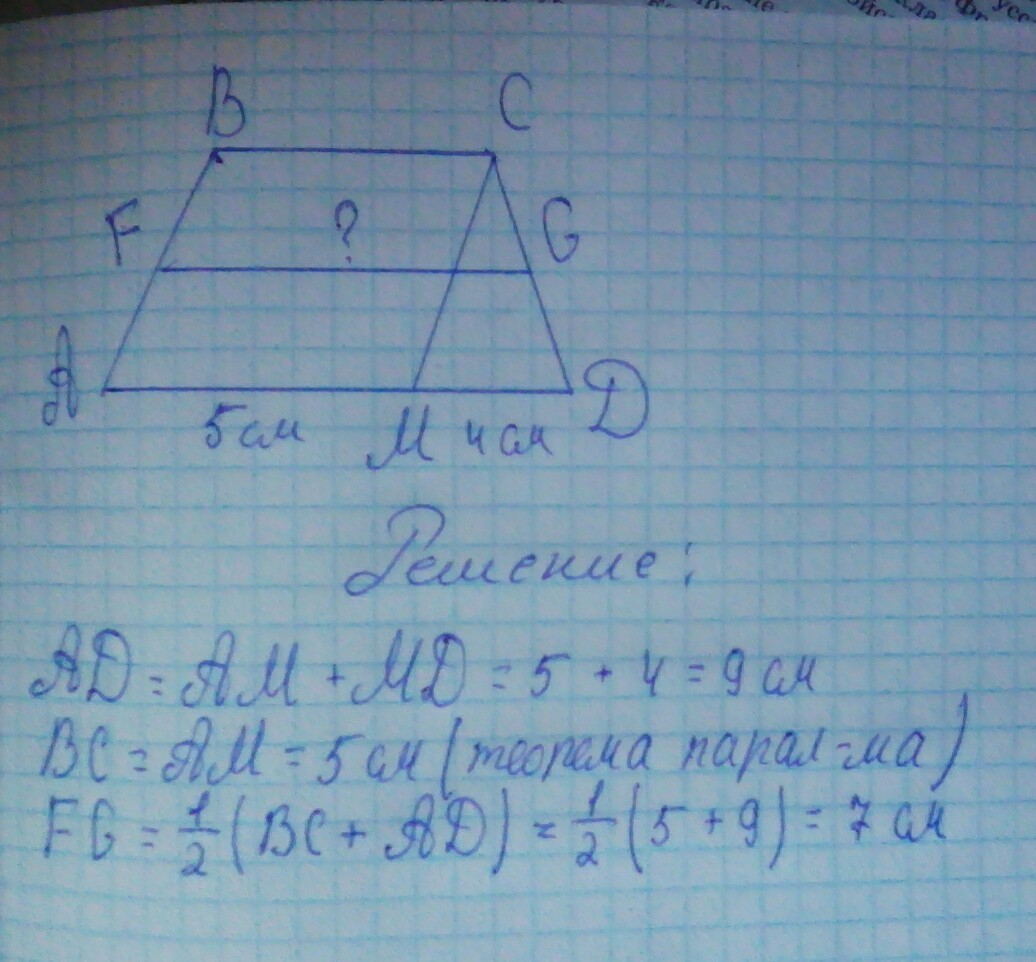 B C
F ? G
A 5 см M 4 см D
Решение:
AD = AM + MD = 5 + 4 = 9 см
BC = AM = 5 см (теорема парал-ма)
FG = 1/2 (BC + AD) = 1/2 (5 + 9) = 7 см